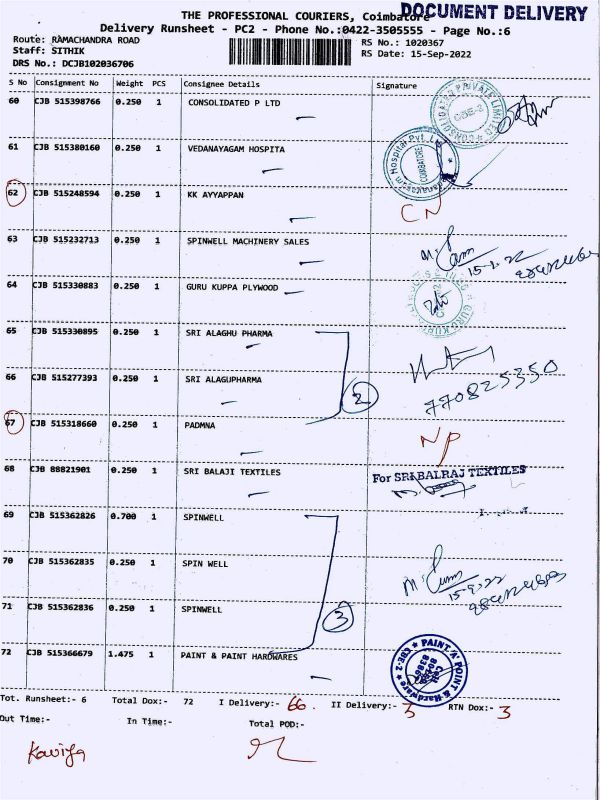 DOCUMENT DELIVERY
THE PROFESSIONAL COURIERS, Coimbatore
Delivery Runsheet - PC2 - Phone No.:0422-3505555 - Page No.:6
Route: RAMACHANDRA ROAD
RS No.: 1020367
Staff: SITHIK
RS Date: 15-Sep-2022
DRS No.: DCJB102036706
S No Consignment No Weight PCS Consignee Details Signature
60 CJB 515398766 0.250 1 CONSOLIDATED P LTD
61 CJB 515380160 0.250 1 VEDANAYAGAM HOSPITA
62 CJB 515248594 0.250 1 KK AYYAPPAN CN
63 CJB 515232713 0.250 1 SPINWELL MACHINERY SALES
64 CJB 515330883 0.250 1 GURU KUPPA PLYWOOD
65 CJB 515330895 0.250 1 SRI ALAGHU PHARMA
66 CJB 515277393 0.250 1 SRI ALAGUPHARMA 2 770825350
67 CJB 515318660 0.250 1 PADMNA NP
68 CJB 88821901 0.250 1 SRI BALAJI TEXTILES For SRI BALRAJ TEXTILES
69 CJB 515362826 0.700 1 SPINWELL
70 CJB 515362835 0.250 1 SPIN WELL
71 CJB 515362836 0.250 1 SPINWELL 3
72 CJB 515366679 1.475 1 PAINT & PAINT HARDWARES PAINT 'A' POINT Hardware CBE-2
Tot. Runsheet:- 6 Total Dox:- 72 I Delivery:- 66 II Delivery:- 3 RTN Dox:- 3
Out Time:- In Time:- Total POD:-
Kaviya